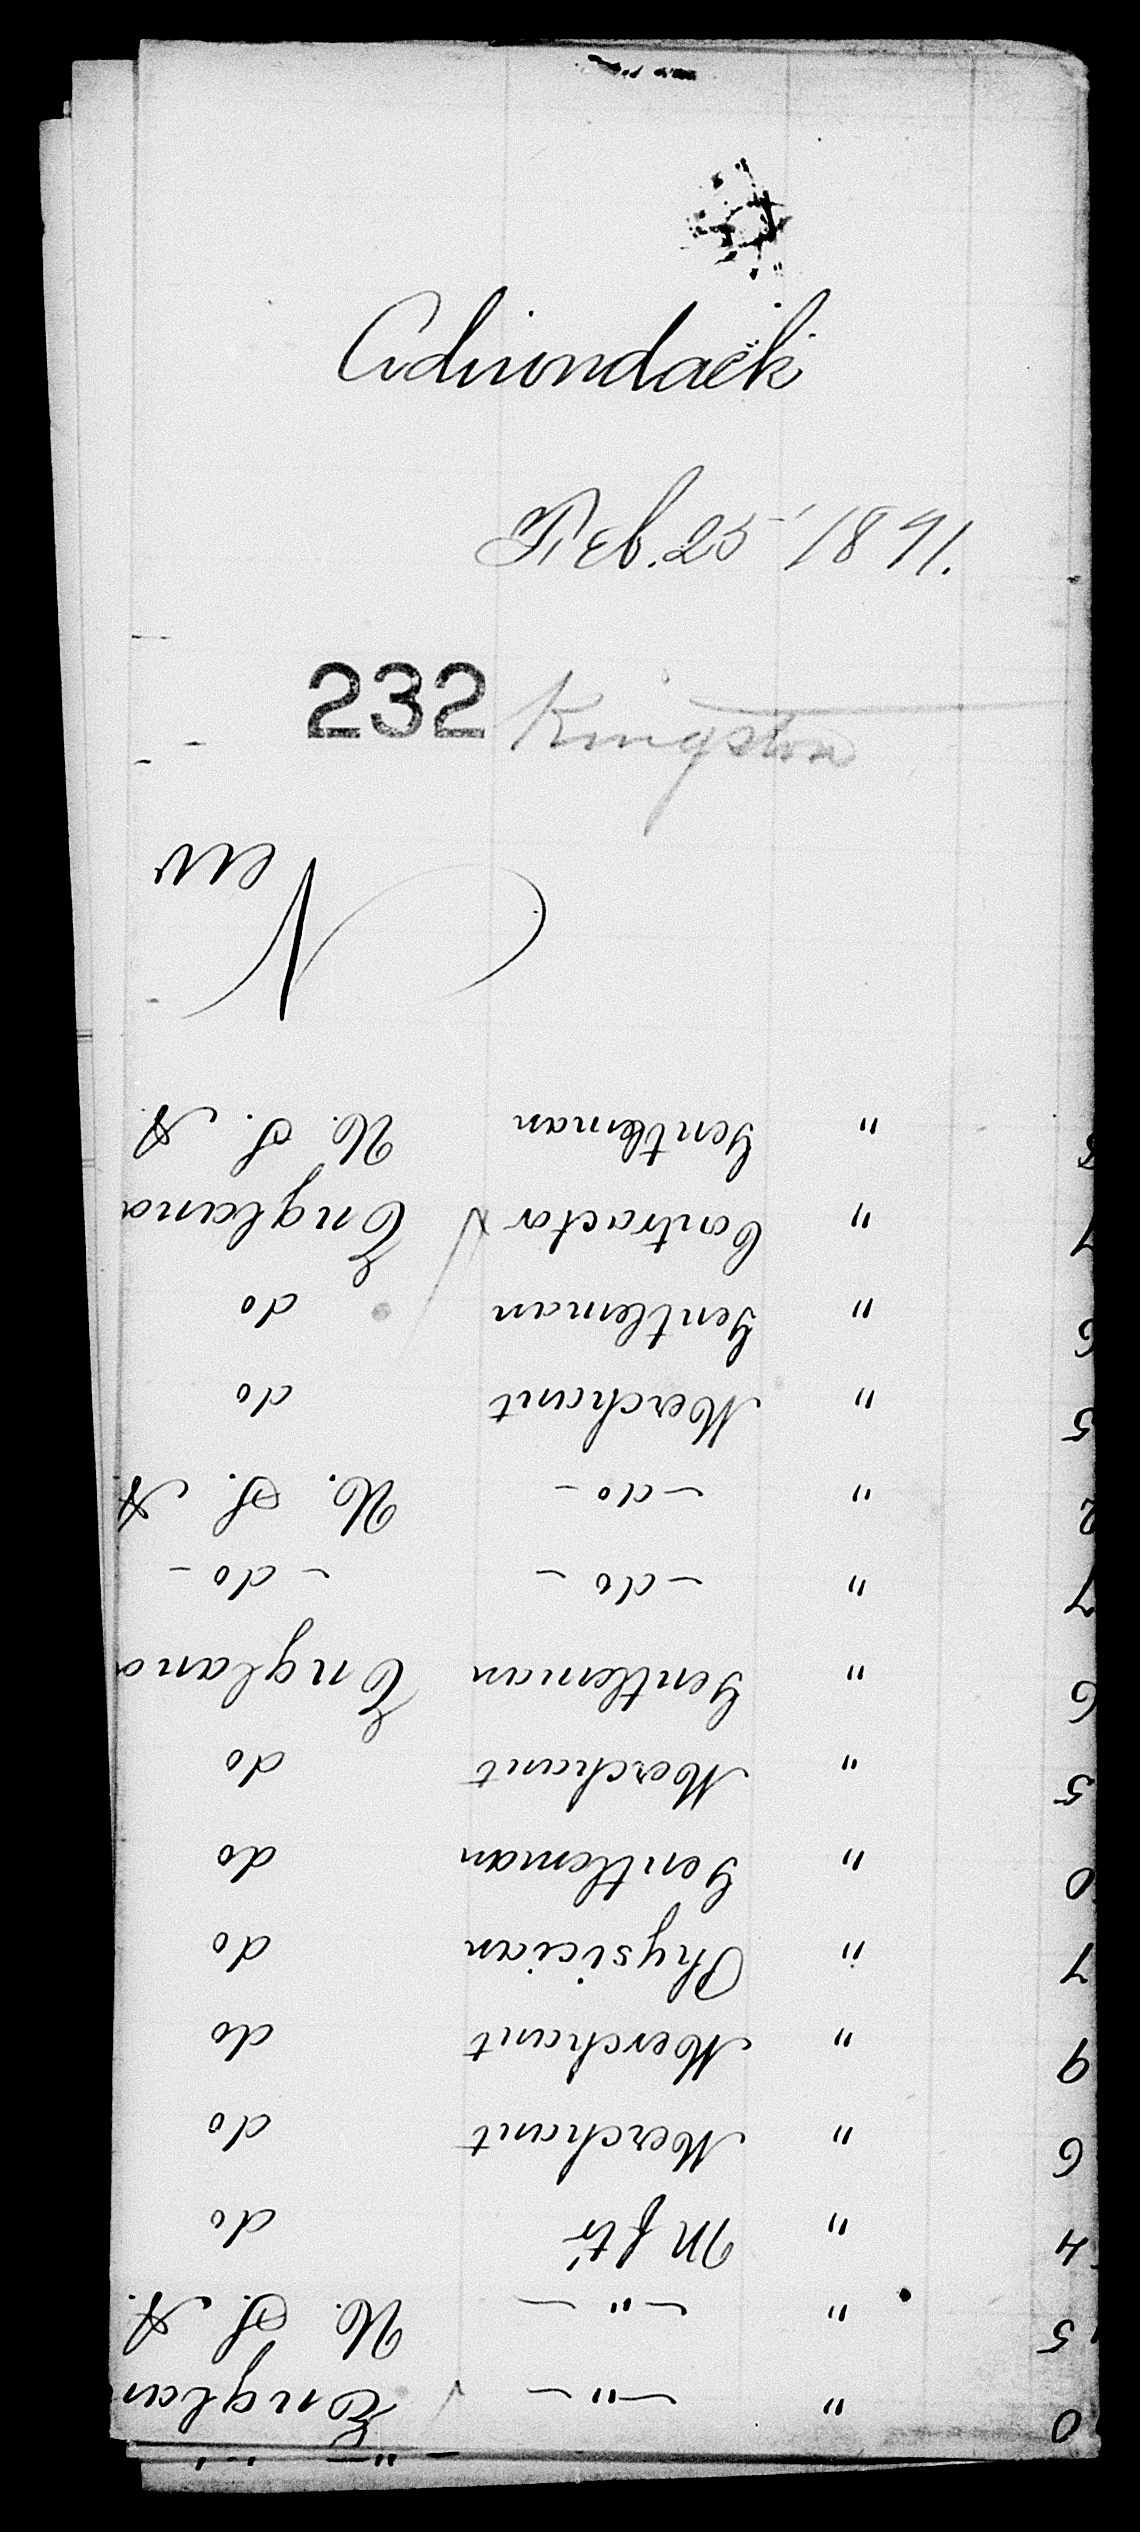 Adirondack
Feb. 25, 1891.
232 Kingston
0 " — " — Englan
5 " — " — U. S. A.
4 " Mftr do
6 " Merchant do
9 " Merchant do
7 " Physician do
0 " Gentleman do
5 " Merchant do
6 " Gentleman England
7 " - do - - do -
2 " - do - U. S. A
5 " Merchant do
6 " Gentleman do
7 " Contractor England
" Gentleman U. S. A.
New